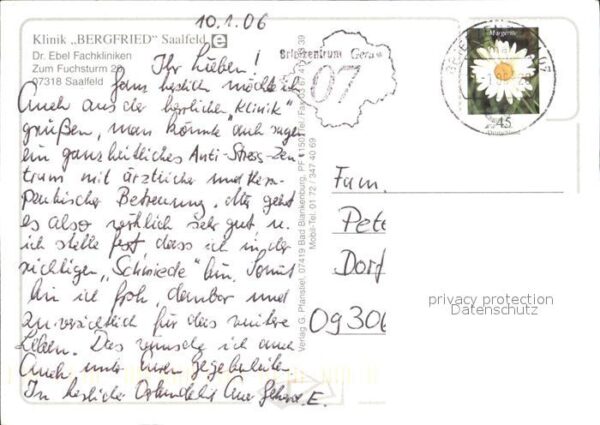 10.1.06
Klinik „BERGFRIED" Saalfeld
Dr. Ebel Fachkliniken
Zum Fuchsturm 20
07318 Saalfeld
Ihr Lieben!
Ganz herzlich möchte ich
Euch aus der herrlichen „Klinik"
grüßen, man könnte auch sagen
ein ganzheitliches Anti-Stress-Zen-
trum mit ärztlicher und thera-
peutischer Betreuung. Mir geht
es also wirklich sehr gut, u.
ich stelle fest, dass ich in der
richtigen „Schmiede" bin. Somit
bin ich froh, dankbar und
zuversichtlich für das weitere
Leben. Das wünsche ich auch
Euch unter Euren Gegebenheiten
In herzlicher Euer E.
Verlag G. Planstiel, 07419 Bad Blankenburg, PF 1150
Mobil-Tel. 01 72 / 347 40 69
Briefzentrum Gera
07
Margerite
45
Deutschland
Fam.
Pete
Dorf
0930
privacy protection
Datenschutz